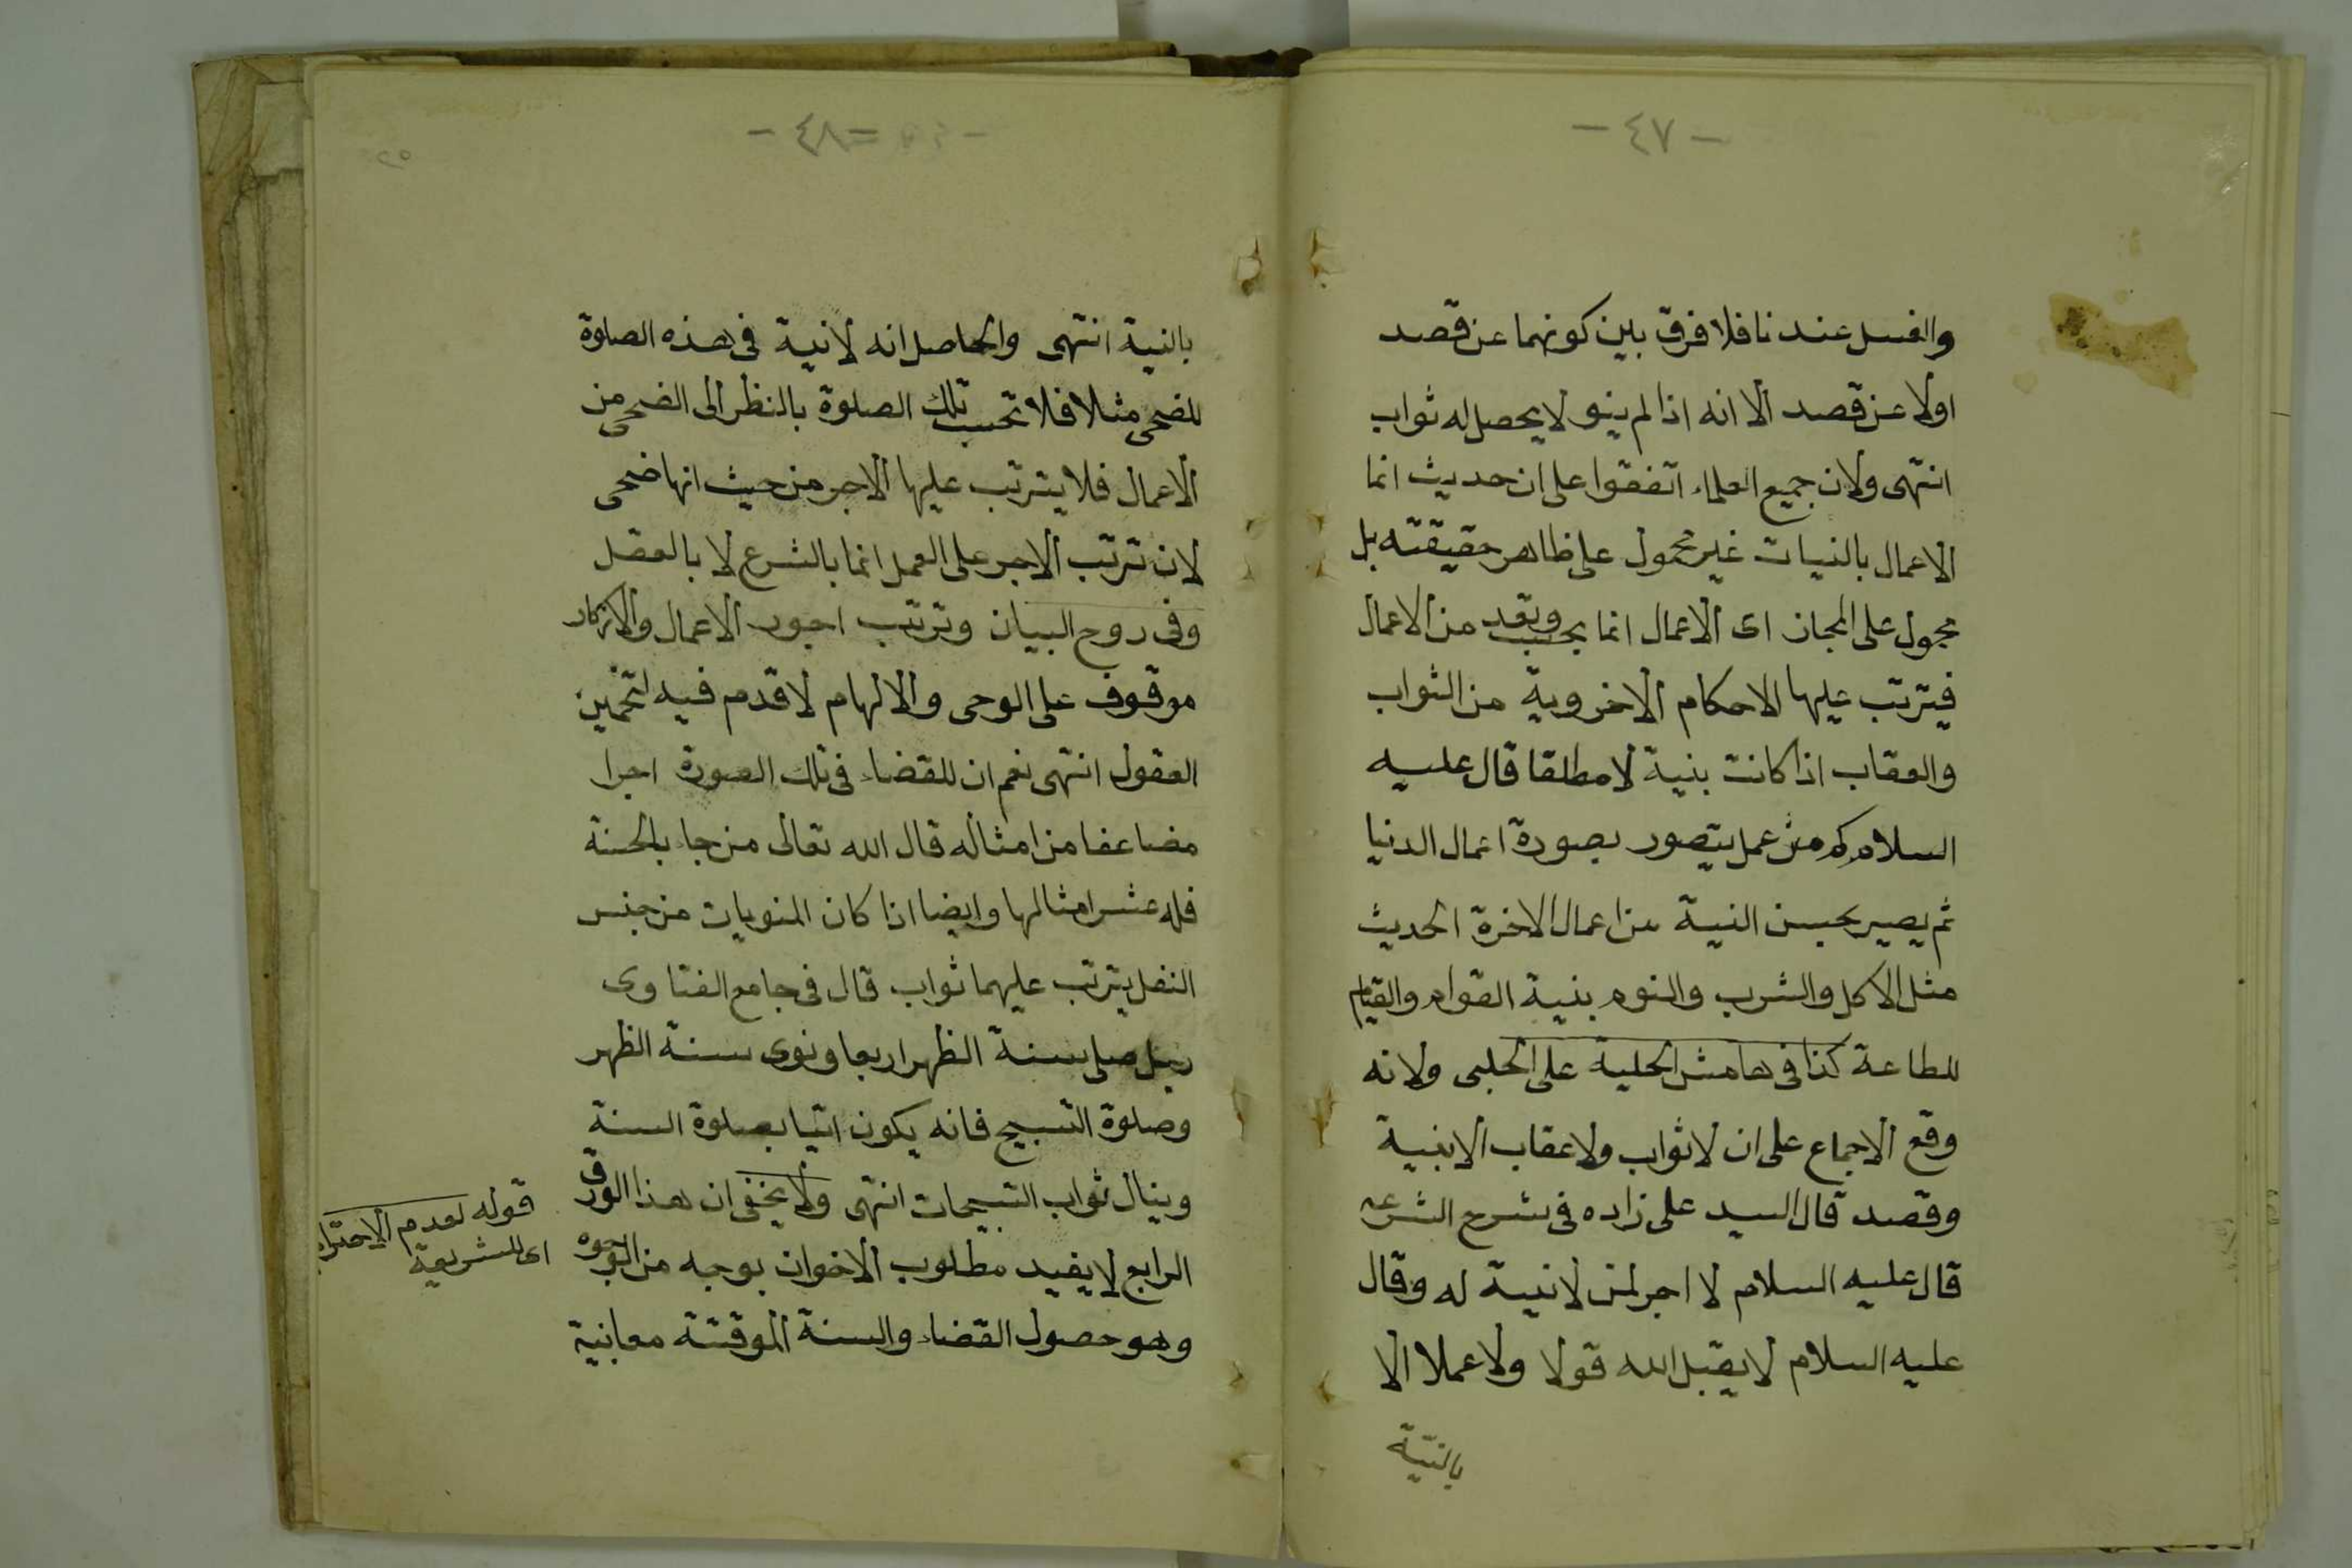 - ٤٧ -
والغسل عندنا فلا فرق بين كونهما عن قصد
اولا عن قصد الا انه اذا لم ينو لا يحصل له ثواب
انتهى ولان جميع العلماء اتفقوا على ان حديث انما
الاعمال بالنيات غير محمول على ظاهر حقيقته بل
محمول على المجاز اى الاعمال انما يحسب ويعد من الاعمال
فيترتب عليها الاحكام الاخروية من الثواب
والعقاب اذا كانت بنية لا مطلقا قال عليه
السلام كم من عمل يتصور بصورة اعمال الدنيا
ثم يصير بحسن النية من اعمال الاخرة الحديث
مثل الاكل والشرب والنوم بنية القوام والقيام
للطاعة كذا فى هامش الحلية على الحلبى ولانه
وقع الاجماع على ان لا ثواب ولا عقاب الا بنية
وقصد قال السيد على زاده فى شرح الشرعه
قال عليه السلام لا اجر لمن لا نية له وقال
عليه السلام لا يقبل الله قولا ولا عملا الا
بالنية
- ٤٨ -
بالنية انتهى والحاصل انه لا نية فى هذه الصلوة
للضحى مثلا فلا تحسب تلك الصلوة بالنظر الى الضحى من
الاعمال فلا يترتب عليها الاجر من حيث انها ضحى
لان ترتب الاجر على العمل انما بالشرع لا بالعقل
وفى روح البيان وترتب اجور الاعمال والاذكار
موقوف على الوحى والالهام لا قدم فيه لتخمين
العقول انتهى نعم ان للقضاء فى تلك الصورة اجرا
مضاعفا من امثاله قال الله تعالى من جاء بالحسنة
فله عشر امثالها وايضا اذا كان المنويات من جنس
النفل يترتب عليهما ثواب قال فى جامع الفتاوى
رجل صلى سنة الظهر اربعا ونوى سنة الظهر
وصلوة التسبيح فانه يكون اتيا بصلوة السنة
وينال ثواب التسبيحات انتهى ولا يخفى ان هذا الورق
الرابع لا يفيد مطلوب الاخوان بوجه من الوجوه
وهو حصول القضاء والسنة الموقتة معا بنية
قوله لعدم الاحترام
اى للشريعة